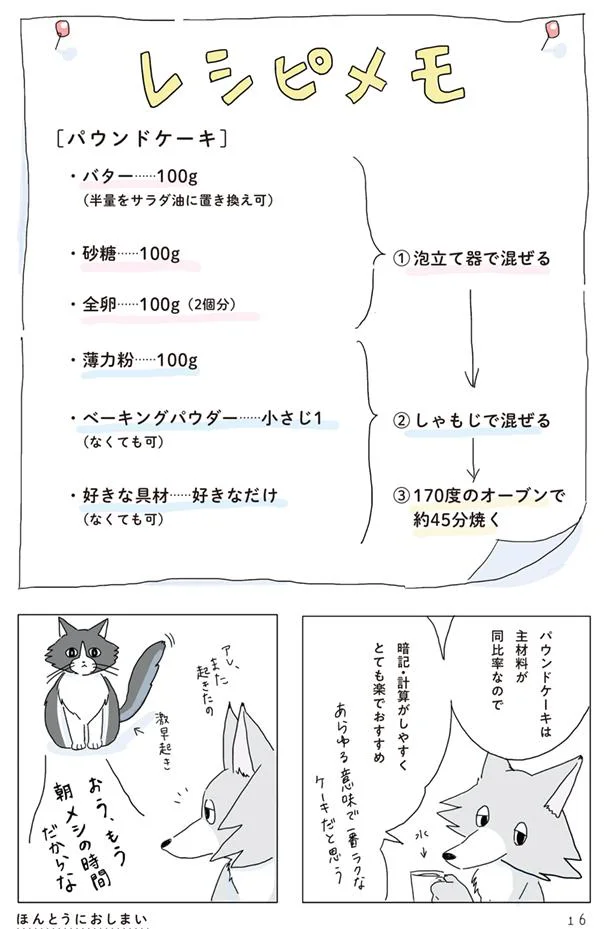 レシピメモ
[パウンドケーキ]
・バター……100g
（半量をサラダ油に置き換え可）
・砂糖……100g
・全卵……100g（2個分）
①泡立て器で混ぜる
・薄力粉……100g
・ベーキングパウダー……小さじ1
（なくても可）
②しゃもじで混ぜる
・好きな具材……好きなだけ
（なくても可）
③170度のオーブンで
約45分焼く
パウンドケーキは
主材料が
同比率なので
暗記・計算がしやすく
とても楽でおすすめ
あらゆる意味で一番ラクな
ケーキだと思う
水
アレ、
また
起きたの
激早起き
おう、もう
朝メシの時間
だからな
ほんとうにおしまい
16